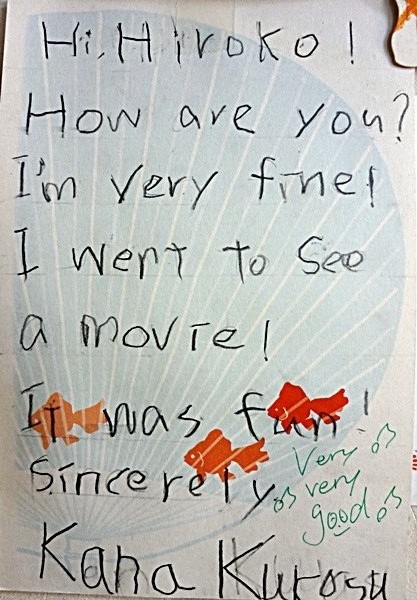 Hi, Hiroko!
How are you?
I'm very fine!
I went to see
a movie!
It was fun!
Sincerely
Very
very
good
Kana Kurosu